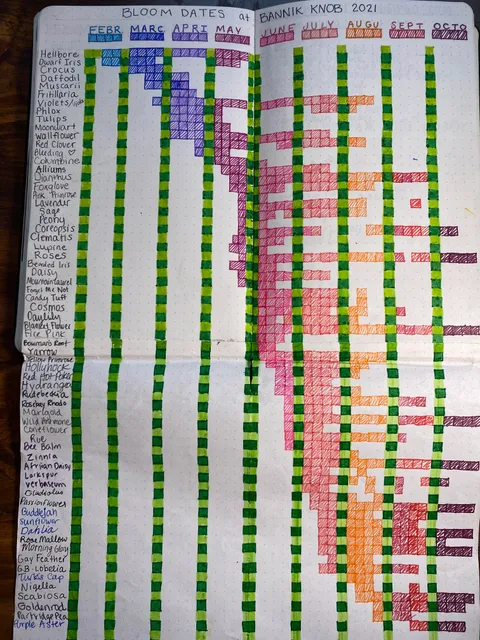 BLOOM DATES at BANNIK KNOB 2021
FEBR MARC APRI MAY JUNE JULY AUGU SEPT OCTO
Hellbore
Dwarf Iris
Crocus
Daffodil
Muscarii
Fritillaria
Violets/
Phlox
Tulips
Moonwart
Wallflower
Red Clover
Bleeding ♡
Columbine
Alliums
Dianthus
Foxglove
Pink Primrose
Lavender
Sage
Peony
Coreopsis
Clematis
Lupine
Roses
Bearded Iris
Daisy
Mountain Laurel
Forget Me Not
Candy Tuft
Cosmos
Daylily
Blanket Flower
Fire Pink
Bowman's Root
Yarrow
Yellow Primrose
Hollyhock
Red Hot Poker
Hydrangea
Rudebeckia
Rosebay Rhodo
Marigold
Wild Anemone
Coneflower
Rue
Bee Balm
Zinnia
African Daisy
Larkspur
Verbascum
Gladiolus
Passionflower
Buddleiah
Sunflower
Dahlia
Rose Mallow
Morning Glory
Gay Feather
G.B. Lobelia
Turks Cap
Nigella
Scabiosa
Goldenrod
Partridge Pea
Purple Aster